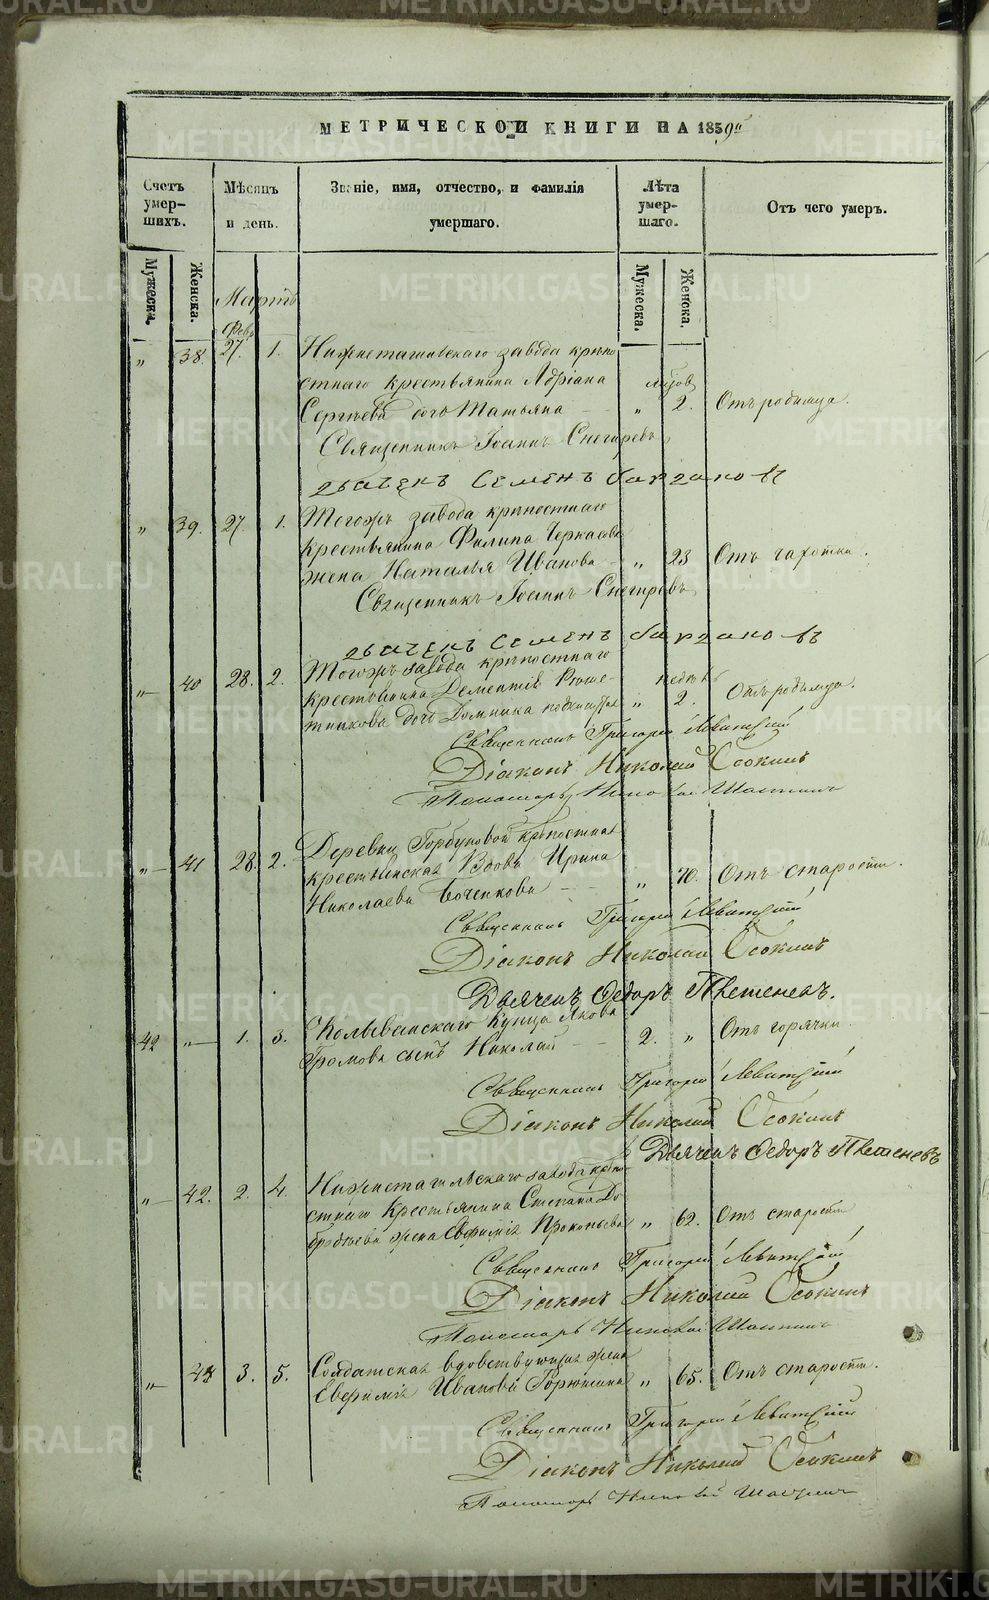 МЕТРИЧЕСКОЙ КНИГИ НА 1859й
Счетъ умер- шихъ.
Мѣсяцъ и день.
Званіе, имя, отчество, и фамилія умершаго.
Лѣта умер- шаго.
Отъ чего умеръ.
Мужеска. Женска. Мужеска. Женска.
Мартъ
Февр
„ 38. 27. 1. Нижнетагильскаго завода крѣпо
стнаго крестьянина Адріана
Сергѣева дочь Татьяна „ 2. Отъ родимца.
Священникъ Іоаннъ Снегиревъ
Дьячекъ Семенъ
„ 39. 27. 1. Тогожъ завода крѣпостнаго
крестьянина Филипа
жена Наталья Иванова „ 23 Отъ чахотки.
Священникъ Іоаннъ Снегиревъ
Дьячекъ Семенъ
„ 40 28. 2. Тогожъ завода крѣпостнаго
крестьянина Дементія Реше- недѣль
тникова дочь Домника „ 2. Отъ родимца.
Священникъ Григорій Левитскій
Діаконъ Николай Осокинъ
Пономарь
„ 41 28. 2. Деревни Горбуновой крѣпостная
крестьянская Вдова Ирина
Николаева „ 70. Отъ старости.
Священникъ Григорій Левитскій
Діаконъ Николай Осокинъ
Дьячекъ Федоръ
42 „ 1. 3. Колыванскаго Купца Якова
Громова сынъ Николай 2. „ Отъ горячки
Священникъ Григорій Левитскій
Діаконъ Николай Осокинъ
Дьячекъ Федоръ
„ 42. 2. 4. Нижнетагильскаго завода крѣпо-
стнаго Крестьянина Степана
жена Евфимія Прокопьева „ 62. Отъ старости
Священникъ Григорій Левитскій
Діаконъ Николай Осокинъ
Пономарь
„ 3. 5. Солдатская вдовствующая жена
Евфимія Иванова „ 65. Отъ старости.
Священникъ Григорій Левитскій
Діаконъ Николай Осокинъ
Пономарь
METRIKI.GASO-URAL.RU